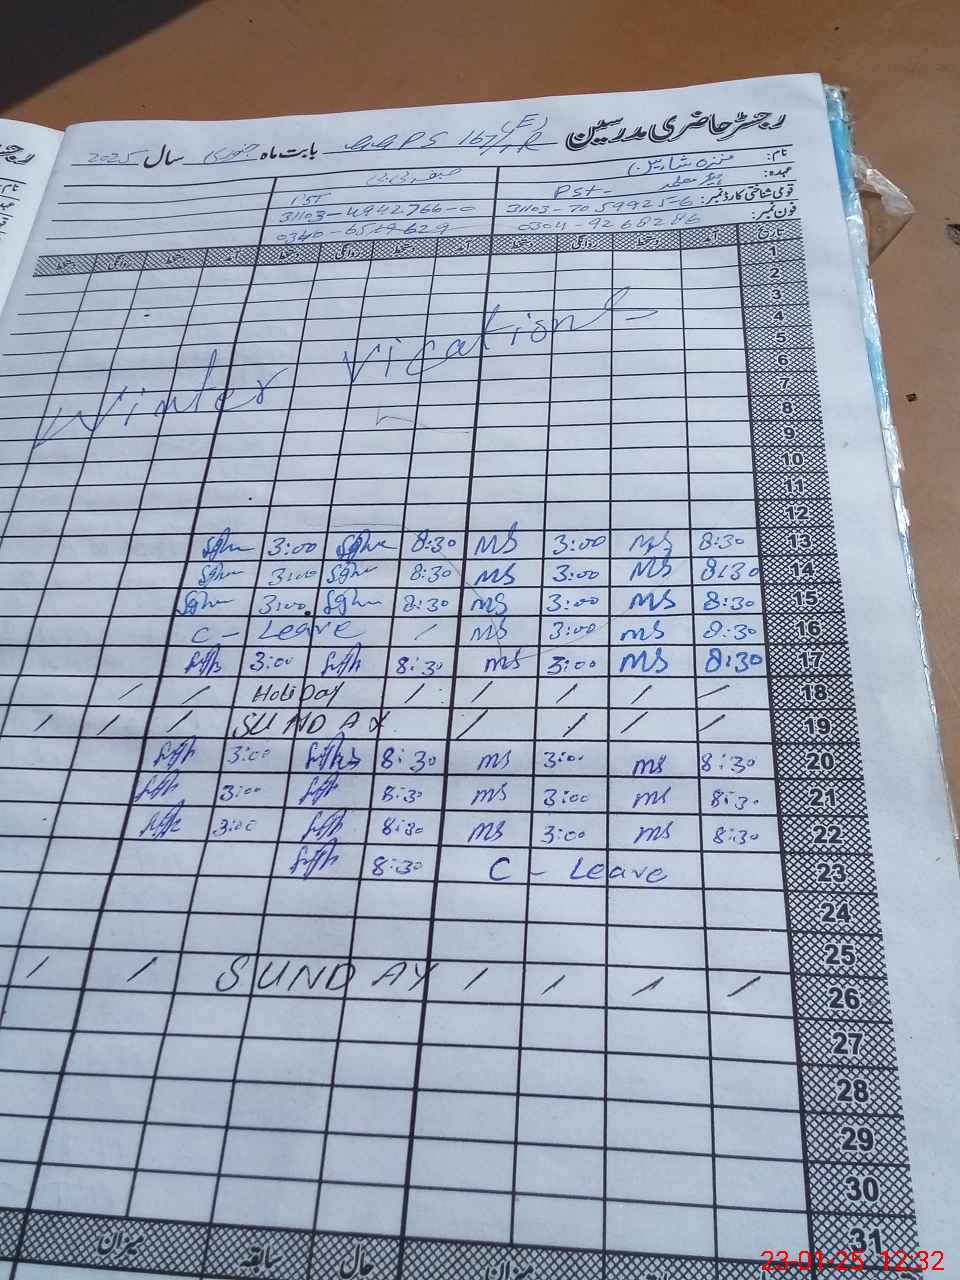 رجسٹر حاضری مدرسین GGPS 167/7R (E) بابت ماہ جنوری سال 2025
نام:
عہدہ: PST PST
قومی شناختی کارڈ نمبر: 31103-7059925-6 31103-4942766-0
فون نمبر: 0304-9268286
تاریخ آمد دستخط روانگی دستخط آمد دستخط روانگی دستخط آمد دستخط روانگی دستخط
1
2
3
4
5
Winter Vications
6
7
8
9
10
11
12
13 8:30 MS 3:00 MS 8:30 3:00
14 8:30 MS 3:00 MS 8:30 3:00
15 8:30 MS 3:00 MS 8:30 3:00
16 8:30 MS 3:00 MS / C - Leave
17 8:30 MS 3:00 MS 8:30 3:00
18 / / / / / Holiday / /
19 / / / / SUNDAY / / /
20 8:30 MS 3:00 MS 8:30 3:00
21 8:30 MS 3:00 MS 8:30 3:00
22 8:30 MS 3:00 MS 8:30 3:00
23 C - Leave 8:30
24
25
26 / / / / SUNDAY / /
27
28
29
30
31
میزان حال سابقہ میزان
23-01-25 12:32